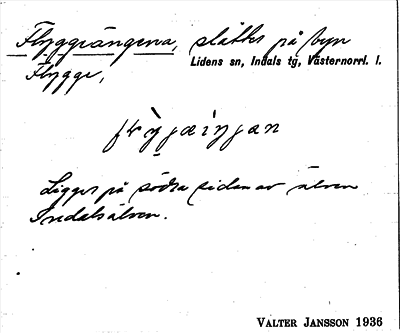 Flyggeängerna, slåtter på byn
Lidens sn, Indals tg, Västernorrl. l.
Flygge,
Ligger på södra sidan av älven
Indalsälven.
VALTER JANSSON 1936